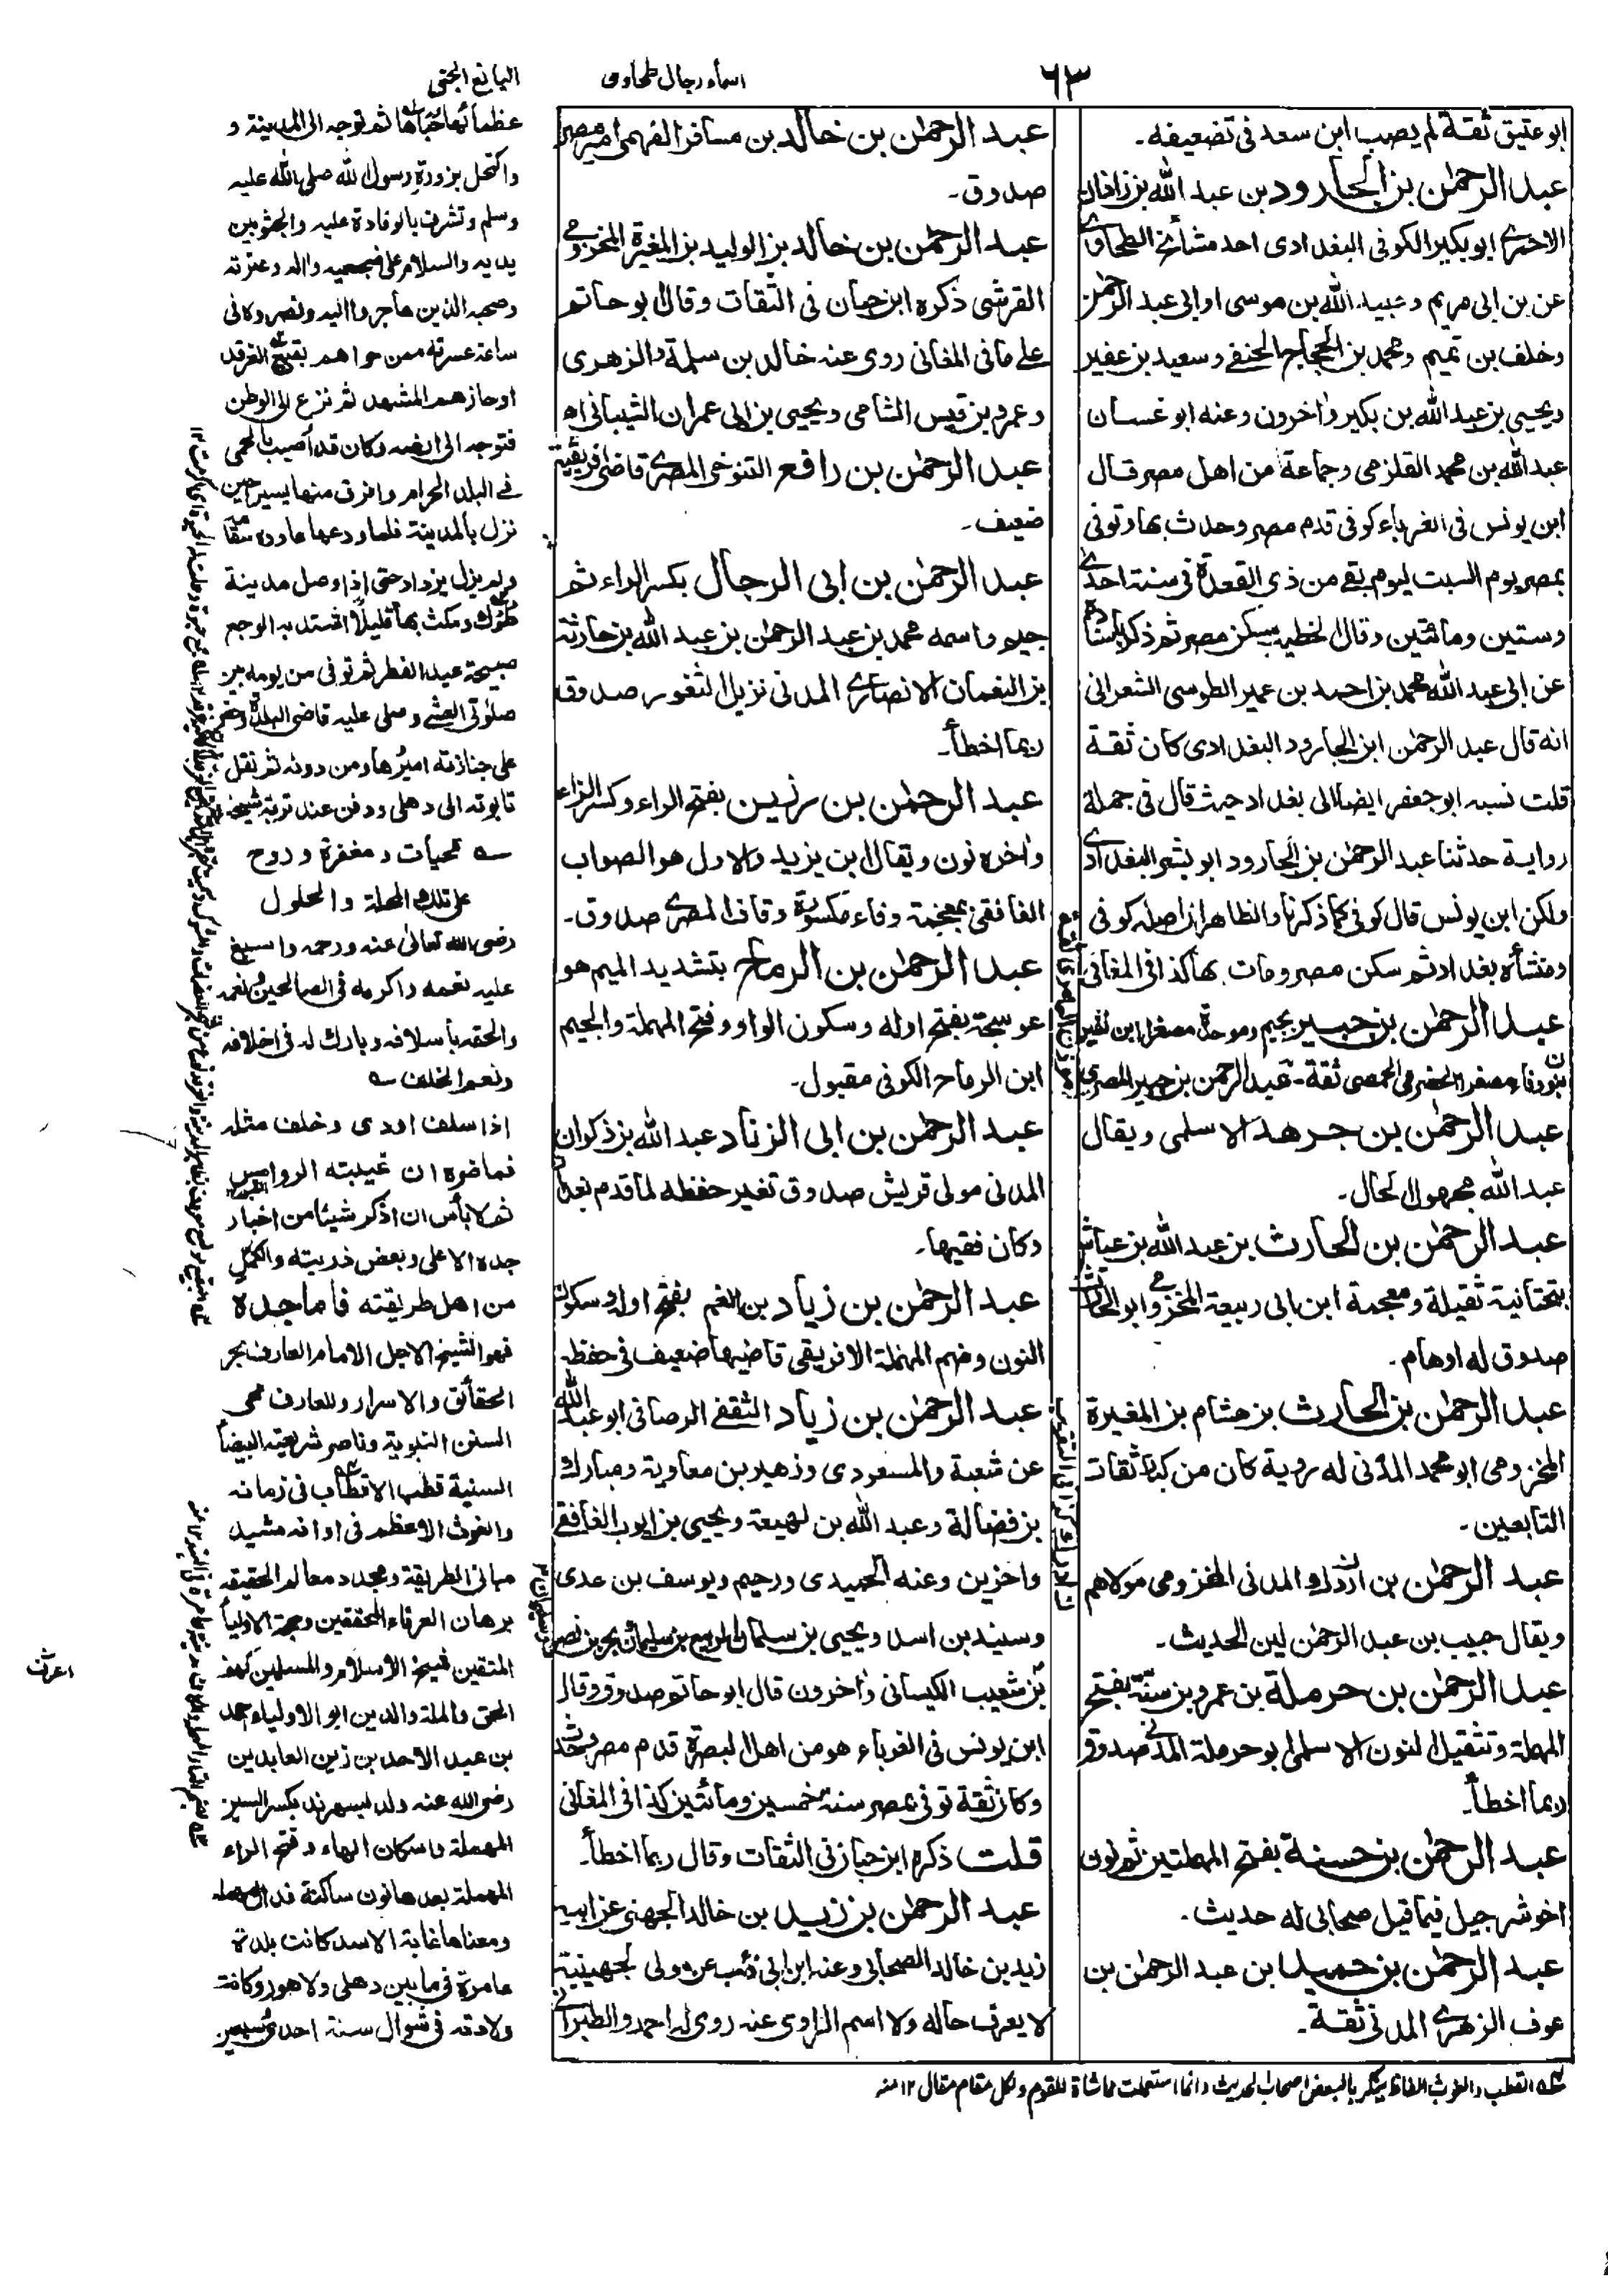 ٦٣
اسماء رجال طحاوى
اليانع الجنى
ابو عتيق ثقة لم يصب ابن سعد فى تضعيفه۔
عبد الرحمٰن بن الجارود بن عبد الله بن زاذان
الاحمرى ابو بكير الكوفى البغدادى احد مشائخ الطحاوى
عن بن ابى مريم وعبيد الله بن موسى وابى عبد الرحمٰن
وخلف بن تميم ومحمد بن الحجاج الحنفى وسعيد بن عفير
ويحيى بن عبد الله بن بكير واخرون وعنه ابو غسان
عبد الله بن محمد القلزمى وجماعة من اهل مصر قال
ابن يونس فى الغرباء كوفى قدم مصر وحدث بها وتوفى
بمصر يوم السبت ليوم بقى من ذى القعدة فى سنة احدى
وستين ومائتين وقال الخطيب سكن مصر ثم ذكر باسناده
عن ابى عبد الله محمد بن احمد بن عمير الطوسى الشعرانى
انه قال عبد الرحمٰن ابن الجارود البغدادى كان ثقة
قلت نسبه ابو جعفر ايضا الى بغداد حيث قال فى جملة
رواية حدثنا عبد الرحمٰن بن الجارود ابو بشر البغدادى
ولكن ابن يونس قال كوفى كما ذكرنا والظاهر ان اصله كوفى
ومنشأه بغداد ثم سكن مصر ومات بها كذا فى المغانى
عبد الرحمٰن بن جبير بجيم وموحدة مصغرا ابن نفير
بنون وفاء مصغرا الحضرمى الحمصى ثقة۔ عبد الرحمن بن جبير المصرى
عبد الرحمٰن بن جرهد الاسلمى ويقال
عبد الله مجهول الحال۔
عبد الرحمٰن بن الحارث بن عبد الله بن عياش
بتحتانية ثقيلة ومعجمة ابن ابى ربيعة المخزومى ابو الحارث
صدوق له اوهام۔
عبد الرحمٰن بن الحارث بن هشام بن المغيرة
المخزومى ابو محمد المدنى له روية كان من كبار ثقات
التابعين۔
عبد الرحمٰن بن المدنى المخزومى مولاهم
ويقال حبيب بن عبد الرحمٰن لين الحديث۔
عبد الرحمٰن بن حرملة بن عمرو بن سنة بفتح
المهملة وتثقيل النون الاسلمى ابو حرملة المدنى صدوق
ربما اخطأ۔
عبد الرحمٰن بن حسنة بفتح المهملتين ثم نون
اخو شرحبيل فيما قيل صحابى له حديث۔
عبد الرحمٰن بن حميد ابن عبد الرحمٰن بن
عوف الزهرى المدنى ثقة۔
عبد الرحمٰن بن خالد بن مسافر الفهمى امير مصر
صدوق۔
عبد الرحمٰن بن خالد بن الوليد بن المغيرة المخزومى
القرشى ذكره ابن حبان فى الثقات وقال ابو حاتم
على مافى المغانى روى عنه خالد بن سلمة والزهرى
وعمرو بن قيس الشامى ويحيى بن ابى عمران الشيبانى اه
عبد الرحمٰن بن رافع التنوخى المصرى قاضى افريقية
ضعيف۔
عبد الرحمٰن بن ابى الرجال بكسر الراء ثم
جيم واسمه محمد بن عبد الرحمٰن بن عبد الله بن حارثة
بن النعمان الانصارى المدنى نزيل الثغور صدوق
ربما اخطأ۔
عبد الرحمٰن بن رزين بفتح الراء وكسر الزاء
واخره نون ويقال ابن يزيد والاول هو الصواب
الغافقى بمعجمة وفاء مكسورة وقاف المصرى صدوق۔
عبد الرحمٰن بن الرماح بتشديد الميم هو
عوسجة بفتح اوله وسكون الواو وفتح المهملة والجيم
ابن الرماح الكوفى مقبول۔
عبد الرحمٰن بن ابى الزناد عبد الله بن ذكوان
المدنى مولى قريش صدوق تغير حفظه لما قدم بغداد
وكان فقيها۔
عبد الرحمٰن بن زياد بن انعم بفتح اوله وسكون
النون وضم المهملة الافريقى قاضيها ضعيف فى حفظه
عبد الرحمٰن بن زياد الثقفى الرصافى ابو عبد الله
عن شعبة والمسعودى وزهير بن معاوية ومبارك
بن فضالة وعبد الله بن لهيعة ويحيى بن ايوب الغافقى
واخرين وعنه الحميدى ورحيم ويوسف بن عدى
وسنيد بن اسد ويحيى بن سلمان الربيع بن سليمان بحر بن نصر
بن شعيب الكيسانى واخرون قال ابو حاتم صدوق وقال
ابن يونس فى الغرباء هو من اهل البصرة قدم مصر وحدث
وكان ثقة توفى بمصر سنة خمسين ومائتين كذا فى المغانى
قلت ذكره ابن حبان فى الثقات وقال ربما اخطأ۔
عبد الرحمٰن بن زيد بن خالد الجهنى عن ابيه
زيد بن خالد الصحابى وعنه ابن ابى ذئب عن مولى لجهينة
لا يعرف حاله ولا اسم الراوى عنه روى له احمد والطبرانى
ثم توجه الى المدينة و
واكتحل بزورة رسول الله صلى الله عليه
وسلم وتشرف بالوفادة عليه والجثو بين
يديه والسلام على ضجيعيه واله وعترته
وصحبه الذين هاجروا اليه ونصروه فى
ساعة عسرته ممن حواهم بقيع الغرقد
اوحازهم المشهد ثم نزع الى الوطن
فتوجه الى ارضه وكان قد اصيب بالحمى
فى البلد الحرام وافرق منها يسيرا حين
نزل بالمدينة فلما ودعها عاوده سقامه
ولم يزل يزداد حتى اذا وصل مدينة
طونك ومكث بها قليلا اشتد به الوجع
صبيحة عيد الفطر ثم توفى من يومه بين
صلوتى العشى وصلى عليه قاضى البلدة وحضر
على جنازته اميرها ومن دونه ثم نقل
تابوته الى دهلى ودفن عند تربة شيخه
تحيات ومغفرة وروح
على تلك المحلة والحلول
رضى الله تعالى عنه ورحمه واسبغ
عليه نعمه واكرمه فى الصالحين ونعمه
والحقه بأسلافه وبارك له فى اخلافه
ونعم الخلف
اذا سلف اودى وخلف مثله
فما ضره ان غيبته الروامس
ثم لا بأس ان اذكر شيئا من اخبار
جده الاعلى وبعض ذريته والكمل
من اهل طريقته فأما جده
فهو الشيخ الاجل الامام العارف بحر
الحقائق والاسرار والمعارف محى
السنن النبوية وناصر شريعته البيضا
السنية قطب الاقطاب فى زمانه
والغوث الاعظم فى اوانه مشيد
مبانى الطريقة ومجدد معالم الحقيقة
برهان العرفاء المحققين وحجة الاوليا
المتقين شيخ الاسلام والمسلمين كهف
الحق والملة والدين ابو الاولياء احمد
بن عبد الاحد بن زين العابدين
رضى الله عنه ولد بسهرند بكسر السين
المهملة واسكان الهاء وفتح الراء
المهملة بعدها نون ساكنة فدال مهملة
ومعناها غابة الاسد كانت بلدة
عامرة فى ما بين دهلى ولاهور وكانت
ولادته فى شوال سنة احدى وسبعين
القطب والغوث الفاظ ينكر بالبعض اصحاب الحديث وانما استعملت مماشاة للقوم ولكل مقام مقال ١٢ منه